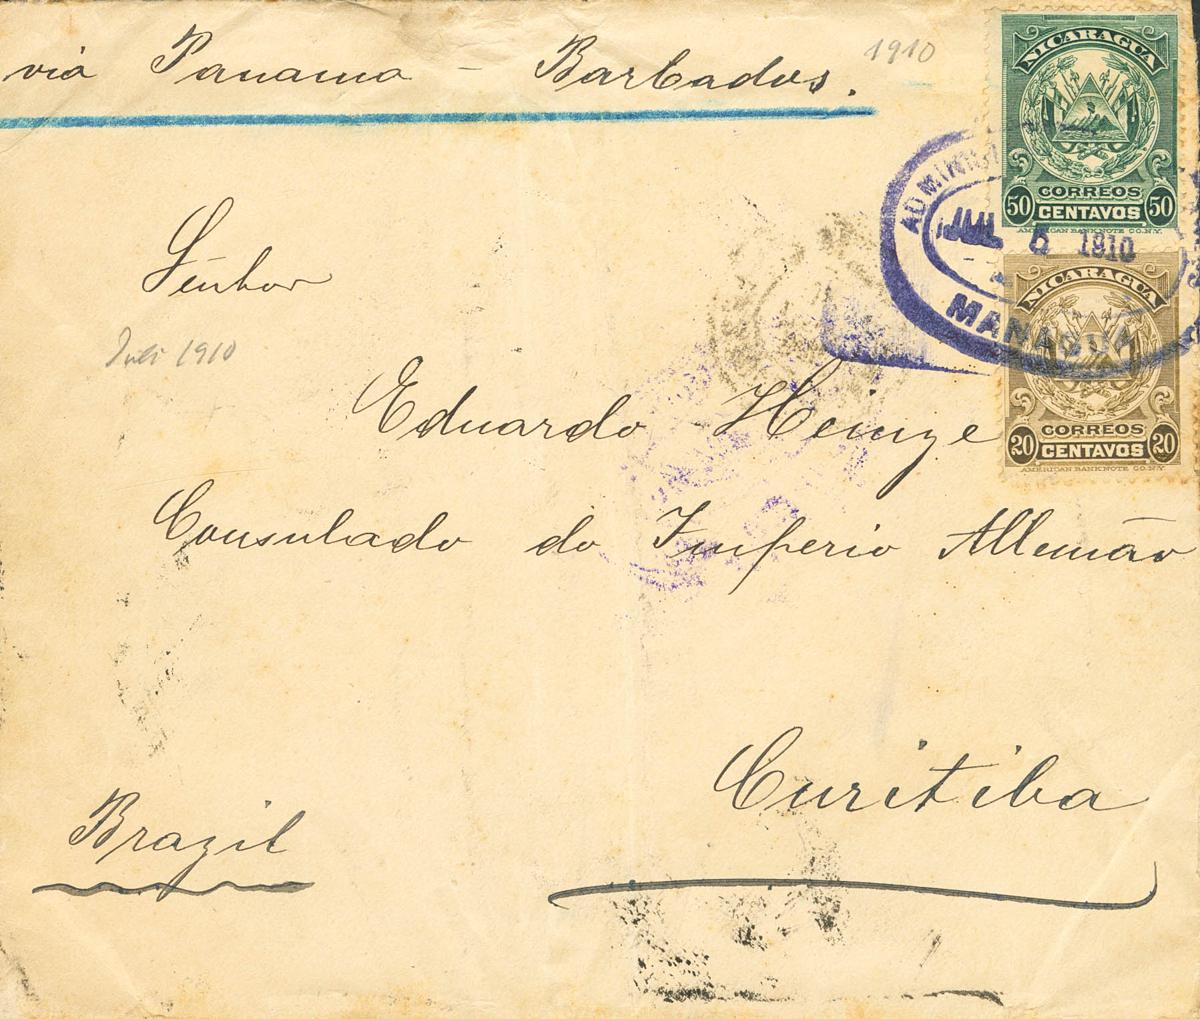 via Panama - Barbados.
1910
NICARAGUA
50 CORREOS 50
CENTAVOS
AMERICAN BANK NOTE CO. N.Y.
JUL 5 1910
MANAGUA
NICARAGUA
20 CORREOS 20
CENTAVOS
AMERICAN BANK NOTE CO. N.Y.
Senhor
Juli 1910
Eduardo Heinze
Consulado do Imperio Allemão
Curitiba
Brazil